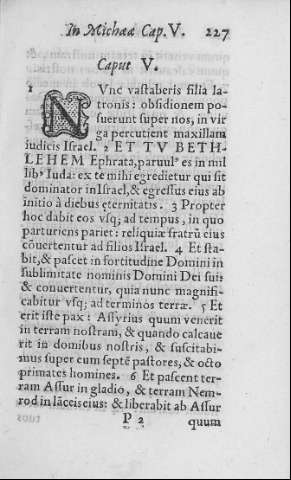 In Michæa Cap. V. 227
Caput V.
1 NVnc vastaberis filia la-
tronis: obsidionem po-
suerunt super nos, in vir
ga percutient maxillam
iudicis Israel. 2 ET TV BETH-
LEHEM Ephrata, paruul⁹ es in mil
lib⁹ Iuda: ex te mihi egredietur qui sit
dominator in Israel, & egressus eius ab
initio à diebus eternitatis. 3 Propter
hoc dabit eos vsq; ad tempus, in quo
parturiens pariet: reliquiæ fratrũ eius
cõuertentur ad filios Israel. 4 Et sta-
bit, & pascet in fortitudine Domini in
sublimitate nominis Domini Dei sui:
& conuertentur, quia nunc magnifi-
cabitur vsq; ad terminos terræ. 5 Et
erit iste pax: Assyrius quum venerit
in terram nostram, & quando calcaue
rit in domibus nostris, & suscitabi-
mus super eum septẽ pastores, & octo
primates homines. 6 Et pascent ter-
ram Assur in gladio, & terram Nem-
rod in lãceis eius: & liberabit ab Assur
P 2 quum